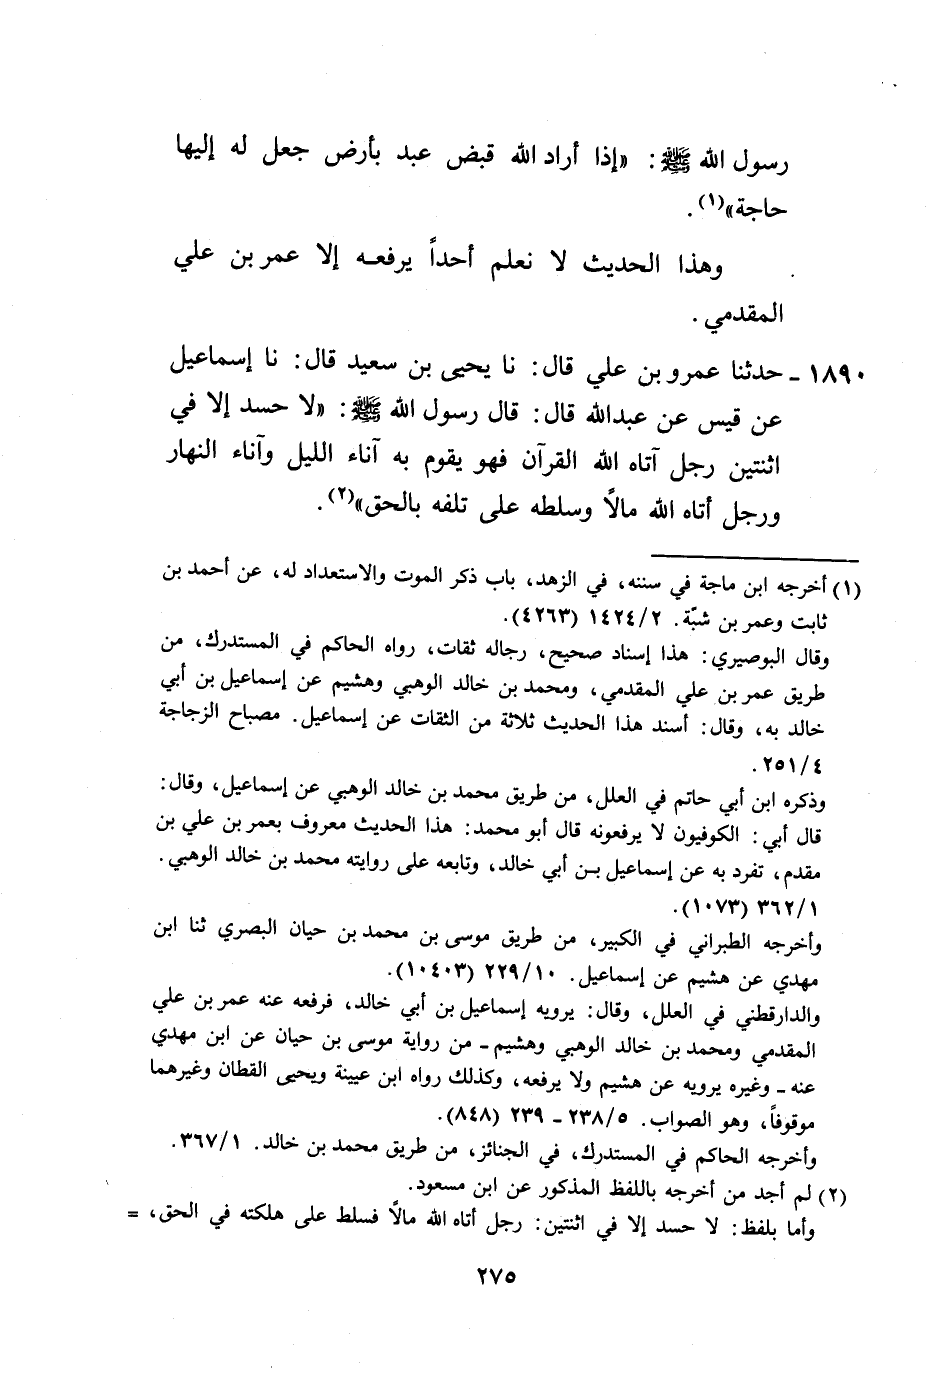 رسول الله ﷺ: «إذا أراد الله قبض عبد بأرض جعل له إليها
حاجة»(١).
وهذا الحديث لا نعلم أحداً يرفعه إلا عمر بن علي
المقدمي.
١٨٩٠ ـ حدثنا عمرو بن علي قال: نا يحيى بن سعيد قال: نا إسماعيل
عن قيس عن عبدالله قال: قال رسول الله ﷺ: «لا حسد إلا في
اثنتين رجل آتاه الله القرآن فهو يقوم به آناء الليل وآناء النهار
ورجل أتاه الله مالاً وسلطه على تلفه بالحق»(٢).
(١) أخرجه ابن ماجة في سننه، في الزهد، باب ذكر الموت والاستعداد له، عن أحمد بن
ثابت وعمر بن شبّة. ١٤٢٤/٢ (٤٢٦٣).
وقال البوصيري: هذا إسناد صحيح، رجاله ثقات، رواه الحاكم في المستدرك، من
طريق عمر بن علي المقدمي، ومحمد بن خالد الوهبي وهشيم عن إسماعيل بن أبي
خالد به، وقال: أسند هذا الحديث ثلاثة من الثقات عن إسماعيل. مصباح الزجاجة
٢٥١/٤.
وذكره ابن أبي حاتم في العلل، من طريق محمد بن خالد الوهبي عن إسماعيل، وقال:
قال أبي: الكوفيون لا يرفعونه قال أبو محمد: هذا الحديث معروف بعمر بن علي بن
مقدم، تفرد به عن إسماعيل بـن أبي خالد، وتابعه على روايته محمد بن خالد الوهبي.
٣٦٢/١ (١٠٧٣).
وأخرجه الطبراني في الكبير، من طريق موسى بن محمد بن حيان البصري ثنا ابن
مهدي عن هشيم عن إسماعيل. ٢٢٩/١٠ (١٠٤٠٣).
والدارقطني في العلل، وقال: يرويه إسماعيل بن أبي خالد، فرفعه عنه عمر بن علي
المقدمي ومحمد بن خالد الوهبي وهشيم ـ من رواية موسى بن حيان عن ابن مهدي
عنه ـ وغيره يرويه عن هشيم ولا يرفعه، وكذلك رواه ابن عيينة ويحيى القطان وغيرهما
موقوفاً، وهو الصواب. ٢٣٨/٥ ـ ٢٣٩ (٨٤٨).
وأخرجه الحاكم في المستدرك، في الجنائز، من طريق محمد بن خالد. ٣٦٧/١.
(٢) لم أجد من أخرجه باللفظ المذكور عن ابن مسعود.
وأما بلفظ: لا حسد إلا في اثنتين: رجل أتاه الله مالاً فسلط على هلكته في الحق، =
٢٧٥